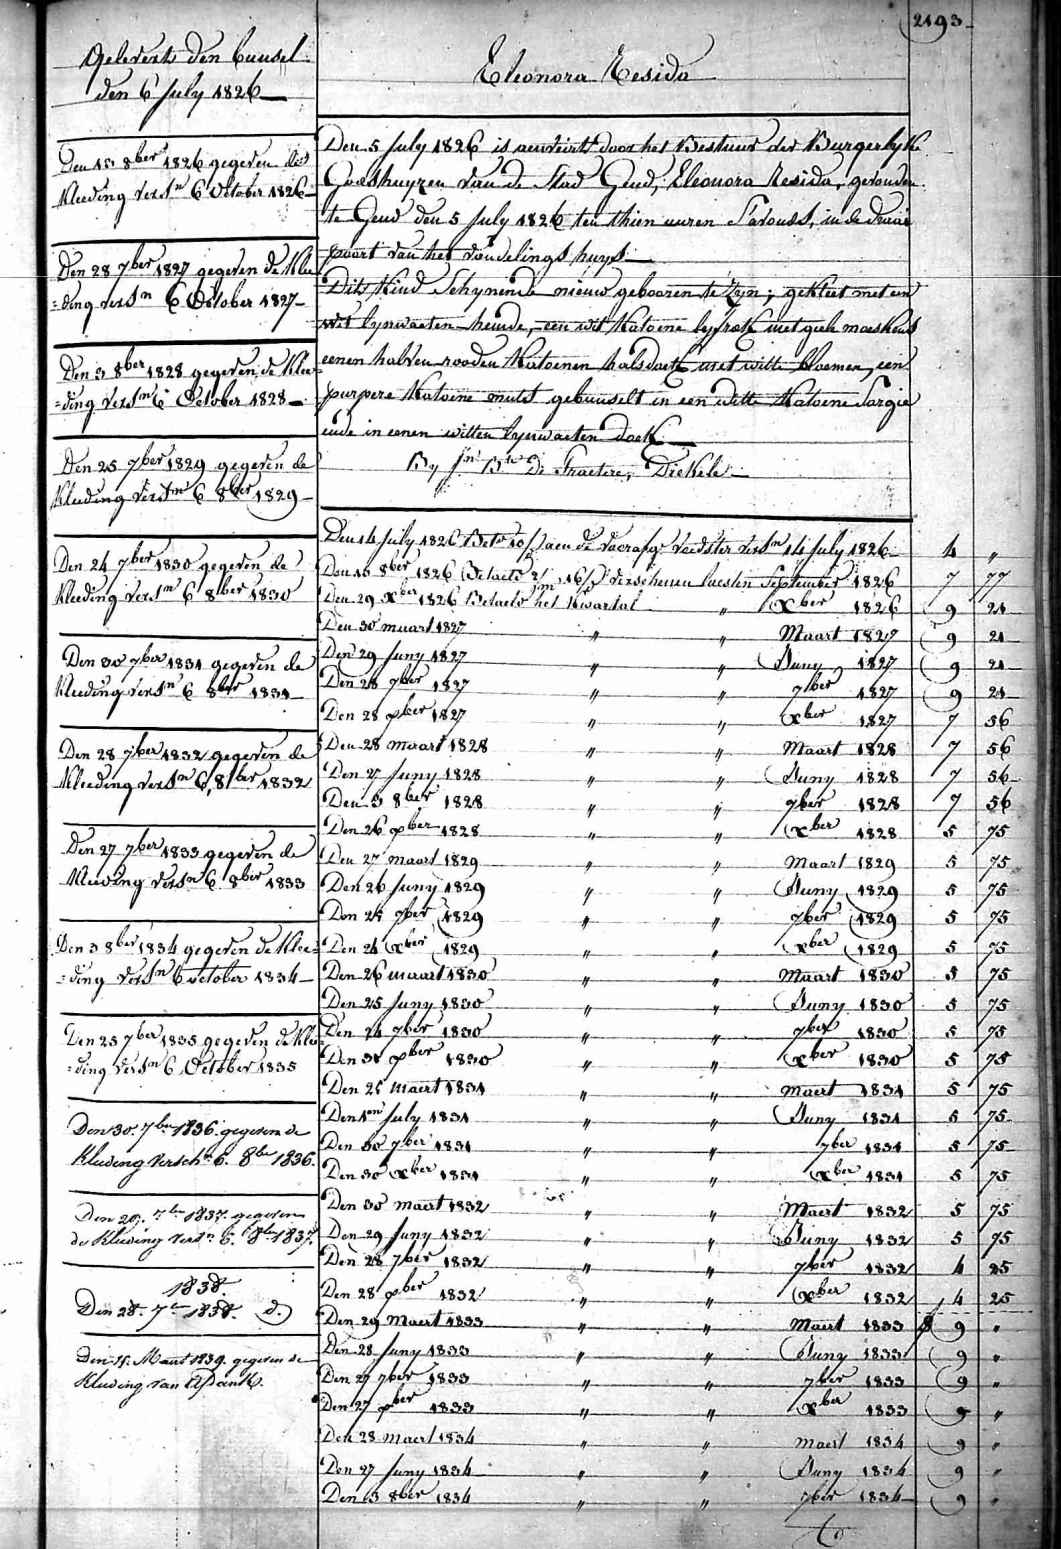 2193
Gelevert den bunsel
den 6 July 1826
Den 15 8ber 1826 gegeven de
Kleeding versn 6 October 1826
Den 28 7ber 1827 gegeven de Klee
=ding versn 6 October 1827
Den 3 8ber 1828 gegeven de Klee
=ding versn 6 October 1828
Den 25 7ber 1829 gegeven de
Kleeding versn 6 8ber 1829
Den 24 7ber 1830 gegeven de
Kleeding versn 6 8ber 1830
Den 30 7ber 1831 gegeven de
Kleeding versn 6 8ber 1831
Den 28 7ber 1832 gegeven de
Kleeding versn 6, 8ber 1832
Den 27 7ber 1833 gegeven de
Kleeding versn 6 8ber 1833
Den 3 8ber 1834 gegeven de Klee=
=ding versn 6 October 1834
Den 25 7ber 1835 gegeven de Klee=
=ding versn 6 October 1835
Den 30. 7ber 1836. gegeven de
Kleeding versch. 6. 8ber 1836.
Den 29. 7ber 1837. gegeven
de Kleeding versn. 6. 8ber 1837.
1838.
Den 28. 7ber 1838. d.
Den 15. Maert 1839. gegeven de
Kleeding van
Eleonora Resida
Den 5 July 1826 is door het Bestuur der Burgerlyke
Godshuyzen van de Stad Gend, Eleonora Resida, gevonden
te Gend den 5 July 1826 ten thien uuren S'avonds, in de draai
poort van het vondelings huys
Dit Kind Schynende nieuw gebooren te zyn; gekleet met een
wit lynwaeten hemde, een wit Katoene lyfrok met geele
eenen halven rooden Katoenen halsdoek met witte bloemen, een
purpere Katoene muts gebunselt in een witte Katoene Sargie
ende in eenen witten lynwaeten doek
By De Praetere, Diekele
Den 14 July 1826 aen de voedster versn 14 July 1826 4 "
Den 15 8ber 1826 Betaelt verschenen laesten September 1826 7 77
Den 29 xber 1826 Betaelt het Kwartal " xber 1826 9 21
Den 30 maart 1827 " " Maart 1827 9 21
Den 29 Juny 1827 " " Juny 1827 9 21
Den 28 7ber 1827 " " 7ber 1827 9 21
Den 28 xber 1827 " " xber 1827 7 56
Den 28 maart 1828 " " Maart 1828 7 56
Den 27 Juny 1828 " " Juny 1828 7 56
Den 3 8ber 1828 " " 7ber 1828 7 56
Den 26 xber 1828 " " xber 1828 5 75
Den 27 maart 1829 " " Maart 1829 5 75
Den 26 Juny 1829 " " Juny 1829 5 75
Den 25 7ber 1829 " " 7ber 1829 5 75
Den 24 xber 1829 " " xber 1829 5 75
Den 26 maart 1830 " " Maart 1830 5 75
Den 25 Juny 1830 " " Juny 1830 5 75
Den 24 7ber 1830 " " 7ber 1830 5 75
Den 31 xber 1830 " " xber 1830 5 75
Den 25 maert 1831 " " Maert 1831 5 75
Den 1en July 1831 " " Juny 1831 5 75
Den 30 7ber 1831 " " 7ber 1831 5 75
Den 30 xber 1831 " " xber 1831 5 75
Den 30 maert 1832 " " Maert 1832 5 75
Den 29 Juny 1832 " " Juny 1832 5 75
Den 28 7ber 1832 " " 7ber 1832 4 25
Den 28 xber 1832 " " xber 1832 4 25
Den 29 Maert 1833 " " Maert 1833 9 "
Den 28 Juny 1833 " " Juny 1833 9 "
Den 27 7ber 1833 " " 7ber 1833 9 "
Den 27 xber 1833 " " xber 1833 9 "
Den 28 maert 1834 " " maert 1834 9 "
Den 27 Juny 1834 " " Juny 1834 9 "
Den 3 8ber 1834 " " 7ber 1834 9 "